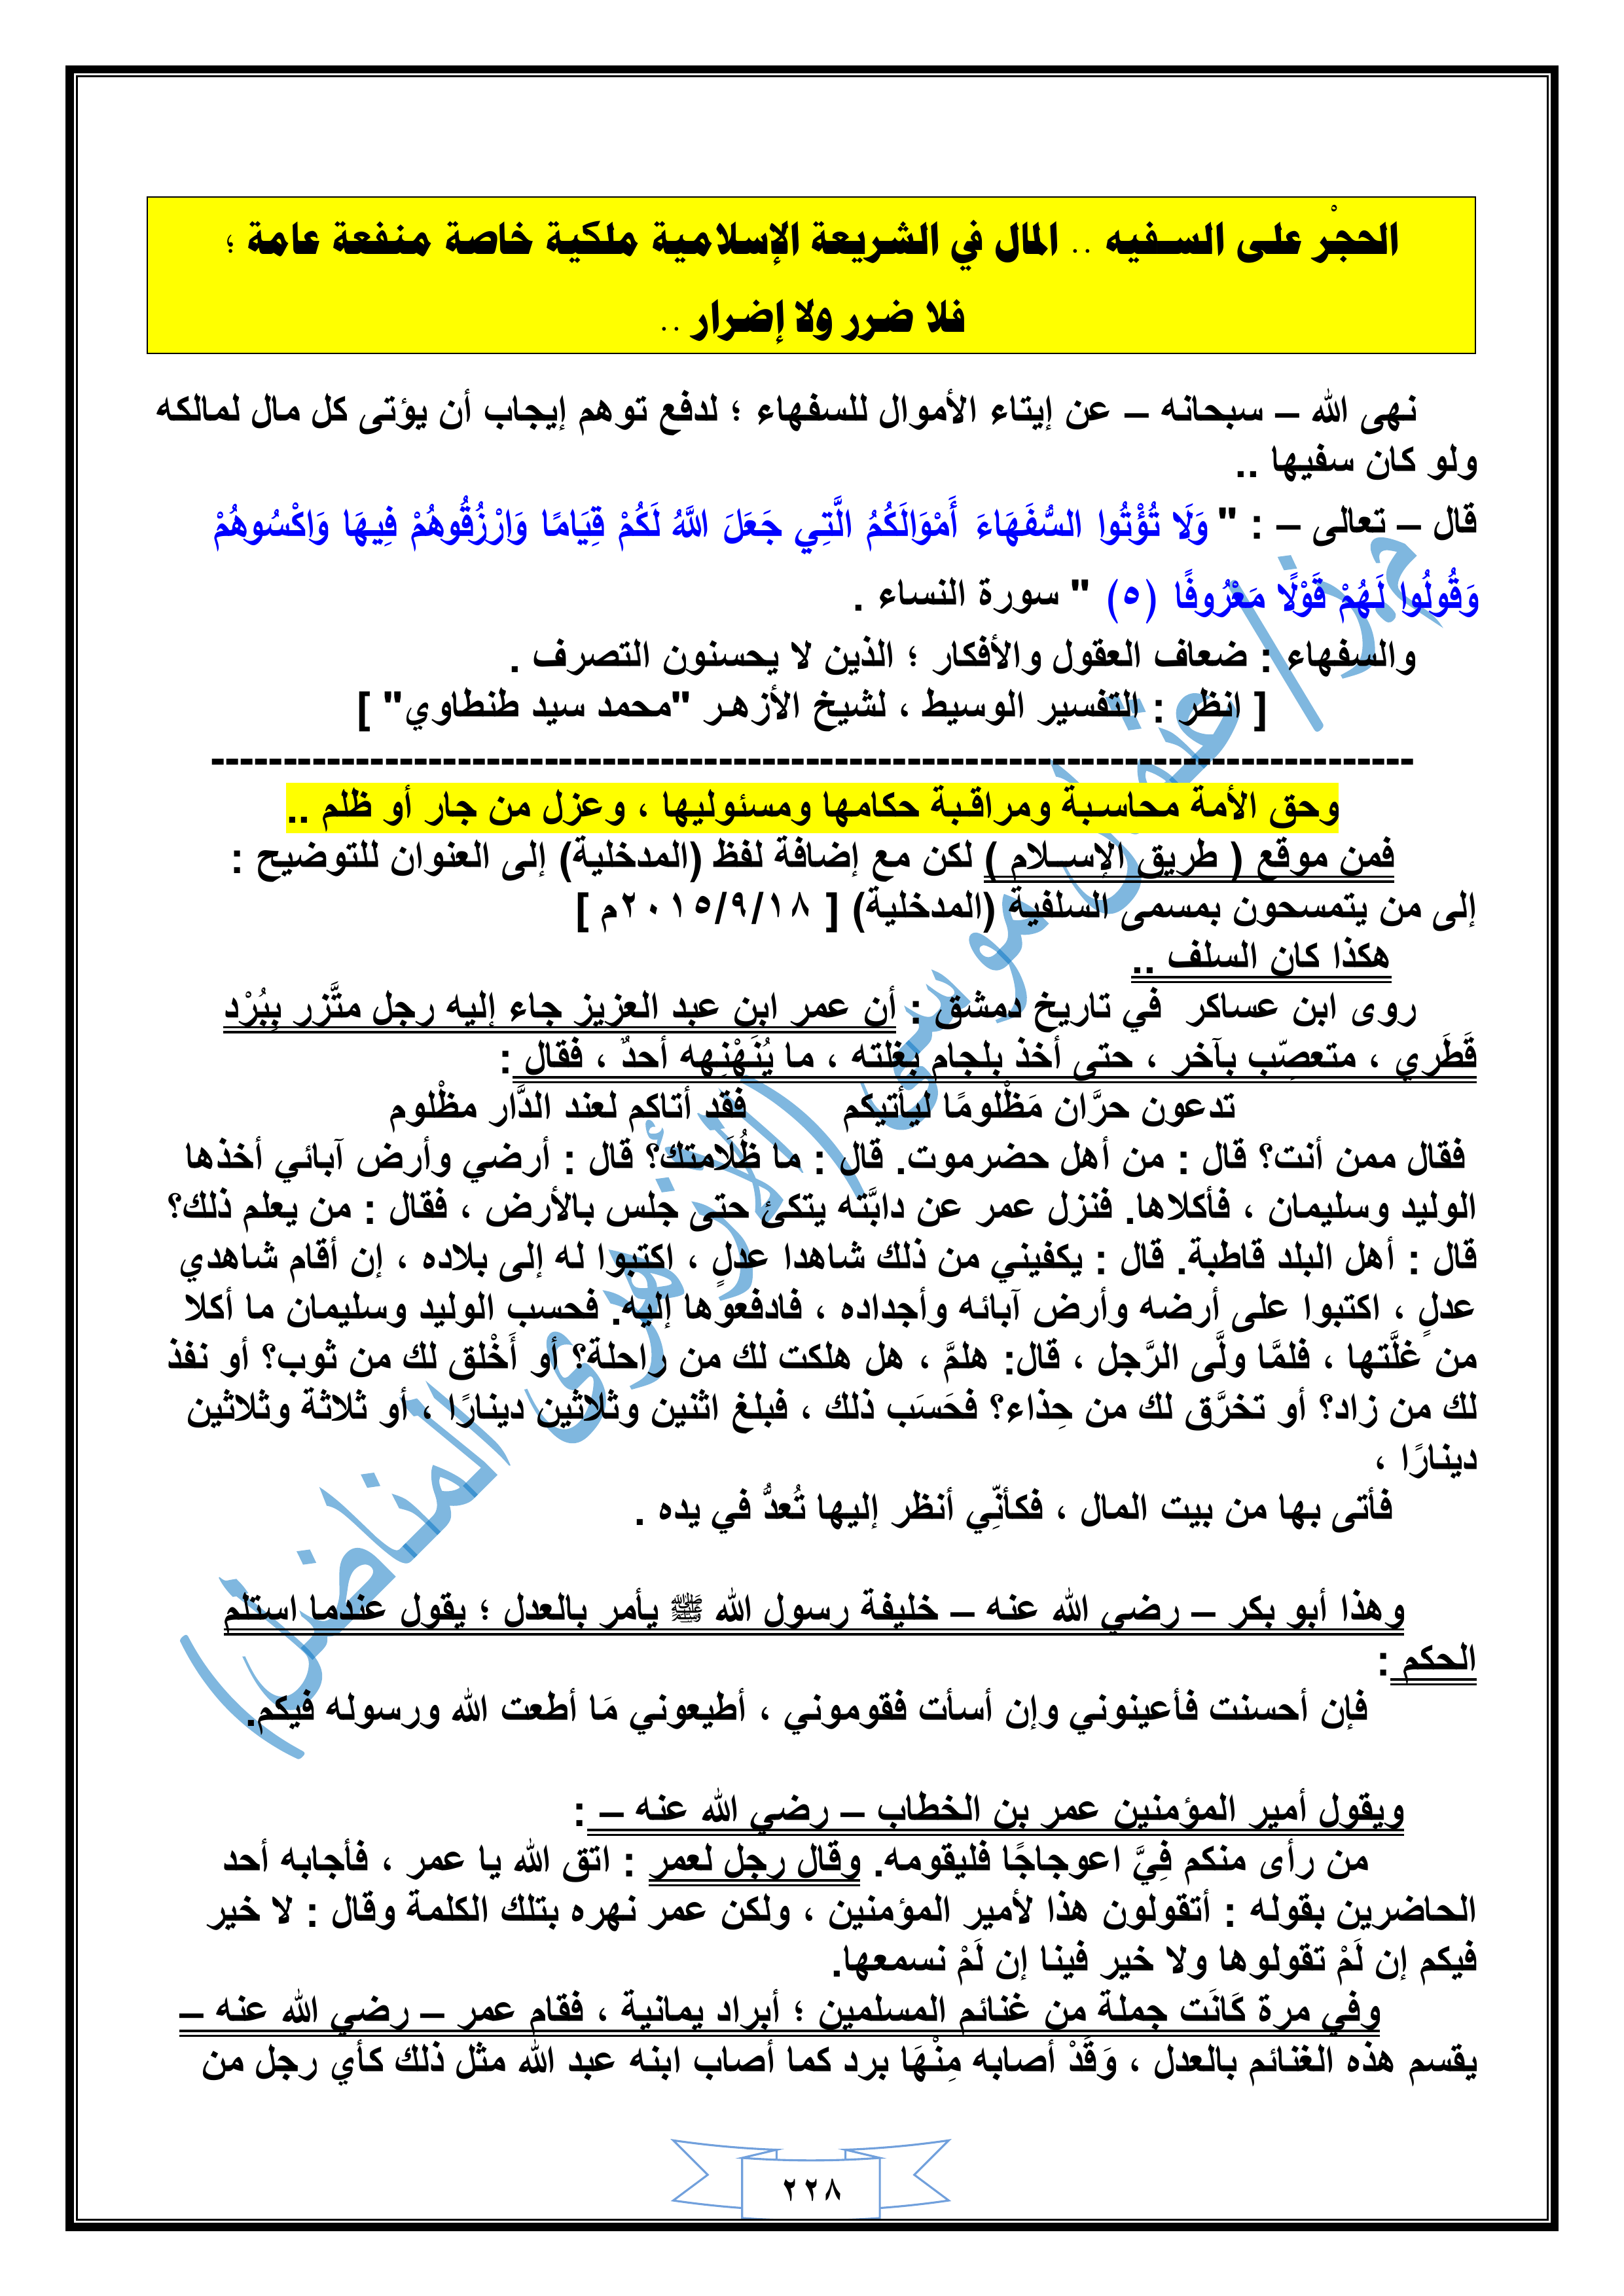 الحجْر على السـفيه .. المال في الشريعة الإسلامية ملكية خاصة منفعة عامة ؛
فلا ضرر ولا إضرار ..
نهى الله – سبحانه – عن إيتاء الأموال للسفهاء ؛ لدفع توهم إيجاب أن يؤتى كل مال لمالكه
ولو كان سفيها ..
قال – تعالى – : " وَلَا تُؤْتُوا السُّفَهَاءَ أَمْوَالَكُمُ الَّتِي جَعَلَ اللَّهُ لَكُمْ قِيَامًا وَارْزُقُوهُمْ فِيهَا وَاكْسُوهُمْ
وَقُولُوا لَهُمْ قَوْلًا مَعْرُوفًا (٥) " سورة النساء .
والسفهاء : ضعاف العقول والأفكار ؛ الذين لا يحسنون التصرف .
[ انظر : التفسير الوسيط ، لشيخ الأزهـر "محمد سيد طنطاوي" ]
-----------------------------------------------------------------------------------
وحق الأمة محاسـبة ومراقـبة حكامها ومسئوليها ، وعزل من جار أو ظلم ..
فمن موقع ( طريق الإسـلام ) لكن مع إضافة لفظ (المدخلية) إلى العنوان للتوضيح :
إلى من يتمسحون بمسمى السلفية (المدخلية) [ ٢٠١٥/٩/١٨م ]
هكذا كان السلف ..
روى ابن عساكر في تاريخ دمشق : أن عمر ابن عبد العزيز جاء إليه رجل متَّزر بِبُرْد
قَطَري ، متعصِّب بآخر ، حتى أخذ بلجام بغلته ، ما يُنَهْنِهه أحدٌ ، فقال :
تدعون حرَّان مَظْلومًا ليأتيكم فقد أتاكم لعند الدَّار مظْلوم
فقال ممن أنت؟ قال : من أهل حضرموت. قال : ما ظُلَامتك؟ قال : أرضي وأرض آبائي أخذها
الوليد وسليمان ، فأكلاها. فنزل عمر عن دابَّته يتكئ حتى جلس بالأرض ، فقال : من يعلم ذلك؟
قال : أهل البلد قاطبة. قال : يكفيني من ذلك شاهدا عدلٍ ، اكتبوا له إلى بلاده ، إن أقام شاهدي
عدلٍ ، اكتبوا على أرضه وأرض آبائه وأجداده ، فادفعوها إليه. فحسب الوليد وسليمان ما أكلا
من غلَّتها ، فلمَّا ولَّى الرَّجل ، قال: هلمَّ ، هل هلكت لك من راحلة؟ أو أَخْلق لك من ثوب؟ أو نفذ
لك من زاد؟ أو تخرَّق لك من حِذاء؟ فحَسَب ذلك ، فبلغ اثنين وثلاثين دينارًا ، أو ثلاثة وثلاثين
دينارًا ،
فأتى بها من بيت المال ، فكأنِّي أنظر إليها تُعدُّ في يده .
وهذا أبو بكر – رضي الله عنه – خليفة رسول الله ﷺ يأمر بالعدل ؛ يقول عندما استلم
الحكم :
فإن أحسنت فأعينوني وإن أسأت فقوموني ، أطيعوني مَا أطعت الله ورسوله فيكم.
ويقول أمير المؤمنين عمر بن الخطاب – رضي الله عنه – :
من رأى منكم فِيَّ اعوجاجًا فليقومه. وقال رجل لعمر : اتق الله يا عمر ، فأجابه أحد
الحاضرين بقوله : أتقولون هذا لأمير المؤمنين ، ولكن عمر نهره بتلك الكلمة وقال : لا خير
فيكم إن لَمْ تقولوها ولا خير فينا إن لَمْ نسمعها.
وفي مرة كَانَت جملة من غنائم المسلمين ؛ أبراد يمانية ، فقام عمر – رضي الله عنه –
يقسم هذه الغنائم بالعدل ، وَقَدْ أصابه مِنْهَا برد كما أصاب ابنه عبد الله مثل ذلك كأي رجل من
٢٢٨